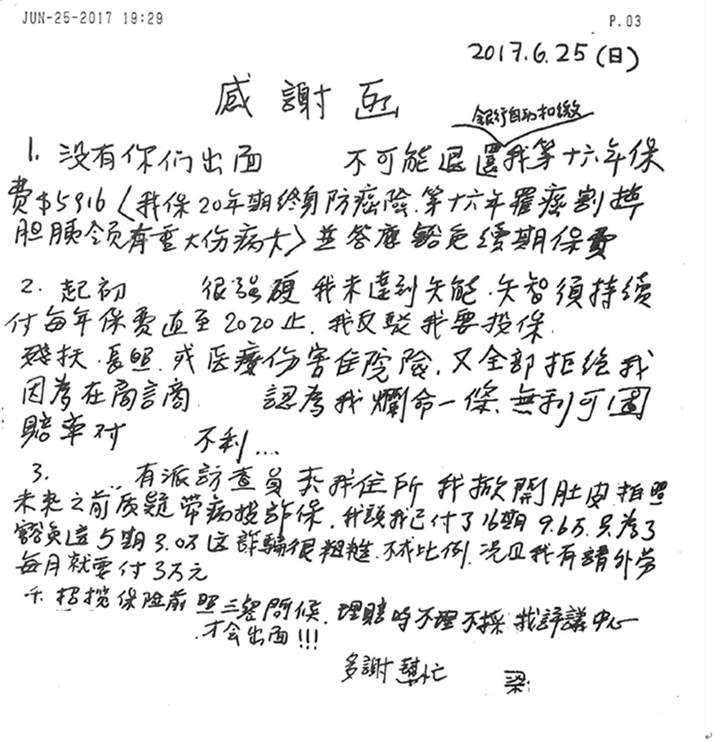 JUN-25-2017 19:29 P.03
2017.6.25(日)
感謝函
銀行自動扣繳
1. 没有你们出面 不可能退還我等十六年保
費$5916〈我保20年期終身防癌險.第十六年罹癌割掉
胆胰领有重大伤病卡〉並答應豁免續期保費
2. 起初 很强硬 我未達到失能.失智須持續
付每年保費直至2020止.我反駁我要投保
殘扶.長照.或医療伤害住院險.又全部拒绝我
因為在商言商 認為我爛命一條.無利可圖
賠率对 不利...
3. ..有派訪查員来我住所 我掀開肚皮拍照
未来之前质疑带病投詐保.我說我已付了16期9.6万.只為了
豁免這5期3.0万这詐騙很粗糙.不成比例.况且我有請外劳
每月就要付3万元
招揽保险前照三餐問候.理賠時不理不採 找評議中心
才会出面!!!
多謝幫忙 梁